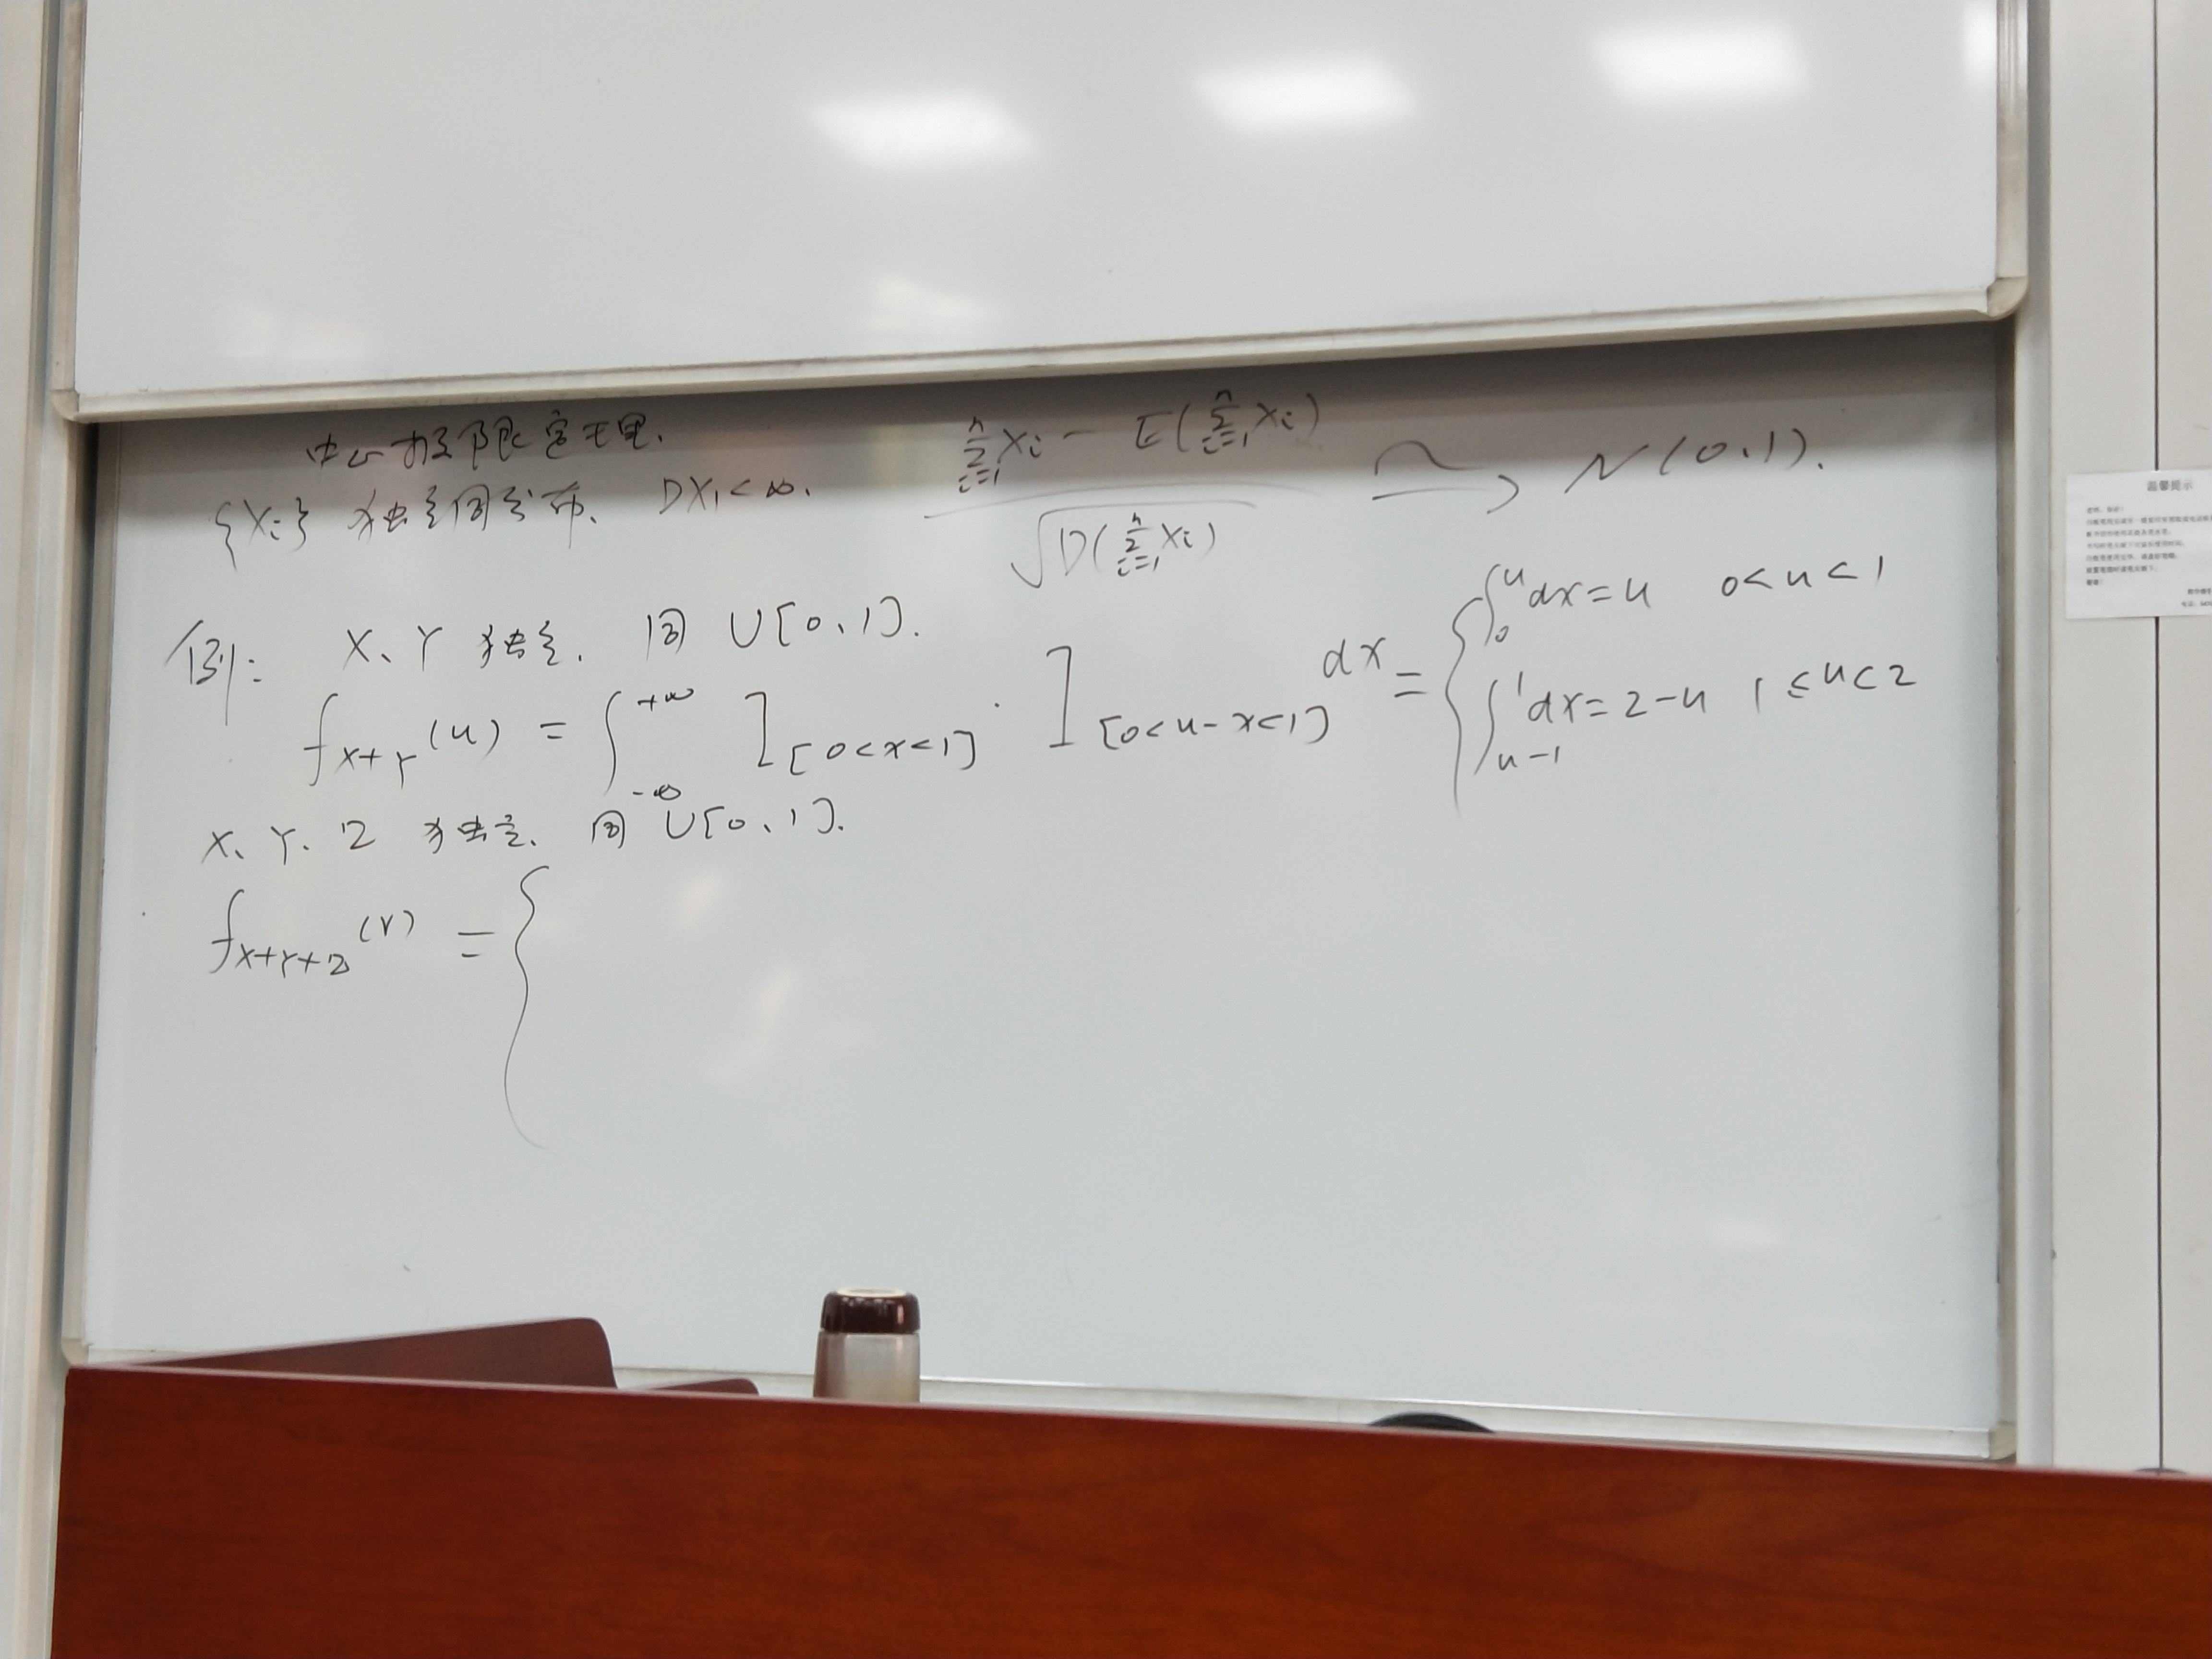 中心极限定理.
{Xi} 独立同分布、 DX₁<∞.
(∑ⁿᵢ₌₁Xi − E(∑ⁿᵢ₌₁Xi)) / √D(∑ⁿᵢ₌₁Xi) ~→ N(0,1).
例: X、Y 独立. 同 U[0,1].
f_{X+Y}(u) = ∫_{-∞}^{+∞} I_{[0<x<1]} · I_{[0<u-x<1]} dx = { ∫_0^u dx = u 0<u<1
∫_{u-1}^1 dx = 2-u 1≤u<2
X、Y、Z 独立. 同 U[0,1].
f_{X+Y+Z}(v) = {
温馨提示